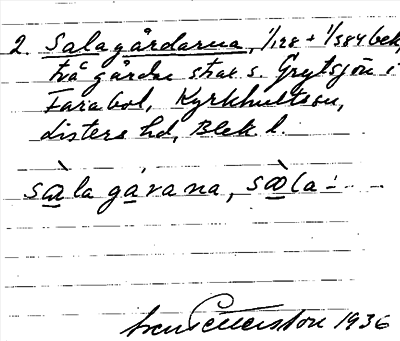 2. Salagårdarna, 1/128 + 1/384 bek,
två gårdar strax s. Grytsjön i
Farabol, Kyrkhults sn,
Listers hd, Blek l.
sàla gárana, sàla -
Sven Petterson 1936